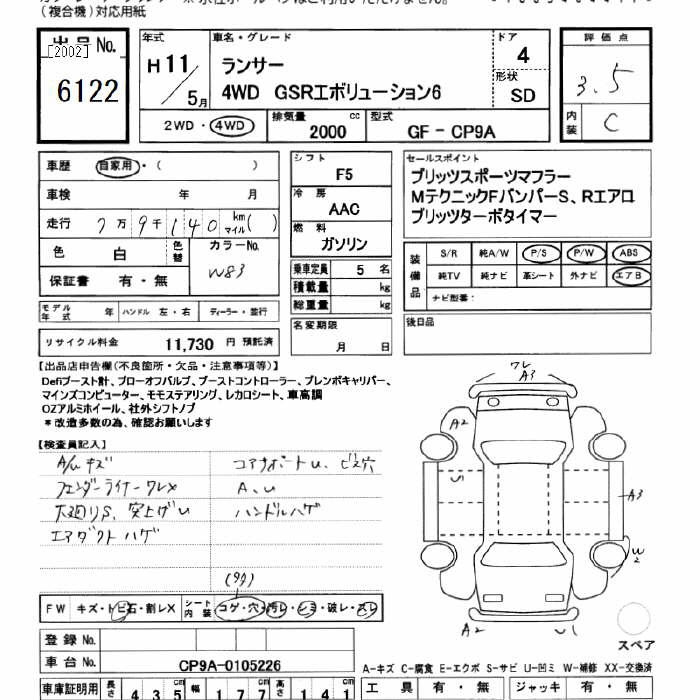 (複合機)対応用紙
出品 No.
[2002]
6122
年式
H11/5月
車名・グレード
ランサー
4WD GSRエボリューション6
ドア
4
形状
SD
評価点
3.5
内装
C
2WD・4WD
排気量
2000
cc
型式
GF - CP9A
車歴 自家用・( )
車検 年 月
走行 7万9千140 km マイル( )
色 白 色替
カラーNo.
W83
保証書 有・無
シフト
F5
冷房
AAC
燃料
ガソリン
乗車定員 5 名
積載量 kg
総重量 kg
セールスポイント
ブリッツスポーツマフラー
MテクニックFバンパーS、Rエアロ
ブリッツターボタイマー
装備品
S/R 純A/W P/S P/W ABS
純TV 純ナビ 革シート 外ナビ エアB
ナビ型番:
モデル年式 年 ハンドル 左・右 ディーラー・並行
リサイクル料金 11,730 円 預託済
名変期限
月 日
後日品
【出品店申告欄(不良箇所・欠品・注意事項等)】
Defiブースト計、ブローオフバルブ、ブーストコントローラー、ブレンボキャリパー、
マインズコンピューター、モモステアリング、レカロシート、車高調
OZアルミホイール、社外シフトノブ
*改造多数の為、確認お願いします
【検査員記入】
A/W キズ
コアサポートU、ビス穴
フェンダーライナーワレX
A、U
下廻りS、突上げU
ハンドルハゲ
エアダクトハゲ
ワレ
A3
A2
S
A3
W2
A2
U1
スペア
FW キズ・トビ石・割レX
シート内装 コゲ・穴・汚レ・シミ・破レ・スレ
登録 No.
車台 No. CP9A-0105226
A-キズ C-腐食 E-エクボ S-サビ U-凹ミ W-補修 XX-交換済
車庫証明用 長さ 435 cm 幅 177 cm 高さ 141 cm
工具 有・無 ジャッキ 有・無